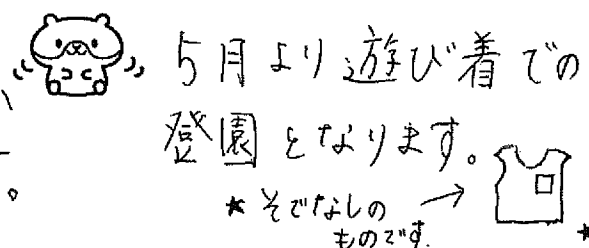 5月より遊び着での
登園となります。
★そでなしの →
ものです.